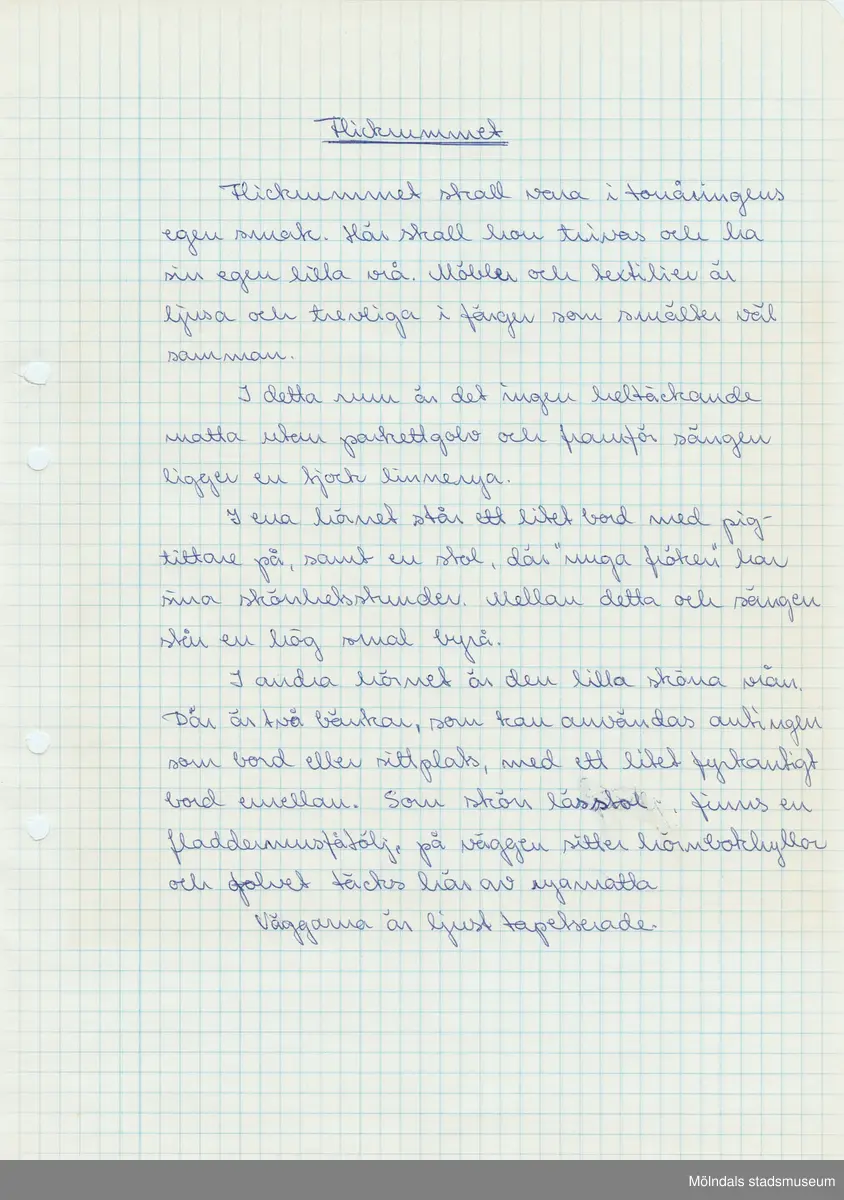 Flickrummet
Flickrummet skall vara i tonåringens
egen smak. Här skall hon trivas och ha
sin egen lilla vrå. Möbler och textilier är
ljusa och trevliga i färger som smälter väl
samman.
I detta rum är det ingen heltäckande
matta utan parkettgolv och framför sängen
ligger en tjock linnerya.
I ena hörnet står ett litet bord med pig-
tittare på, samt en stol, där "unga fröken" har
sina skönhetsstunder. Mellan detta och sängen
står en hög smal byrå.
I andra hörnet är den lilla sköna vrån.
Där är två bänkar, som kan användas antingen
som bord eller sittplats, med ett litet fyrkantigt
bord emellan. Som skön lässtol, finns en
fladdermusfåtölj, på väggen sitter hörnbokhyllor
och golvet täcks här av ryamatta
Väggarna är ljust tapetserade.
Mölndals stadsmuseum